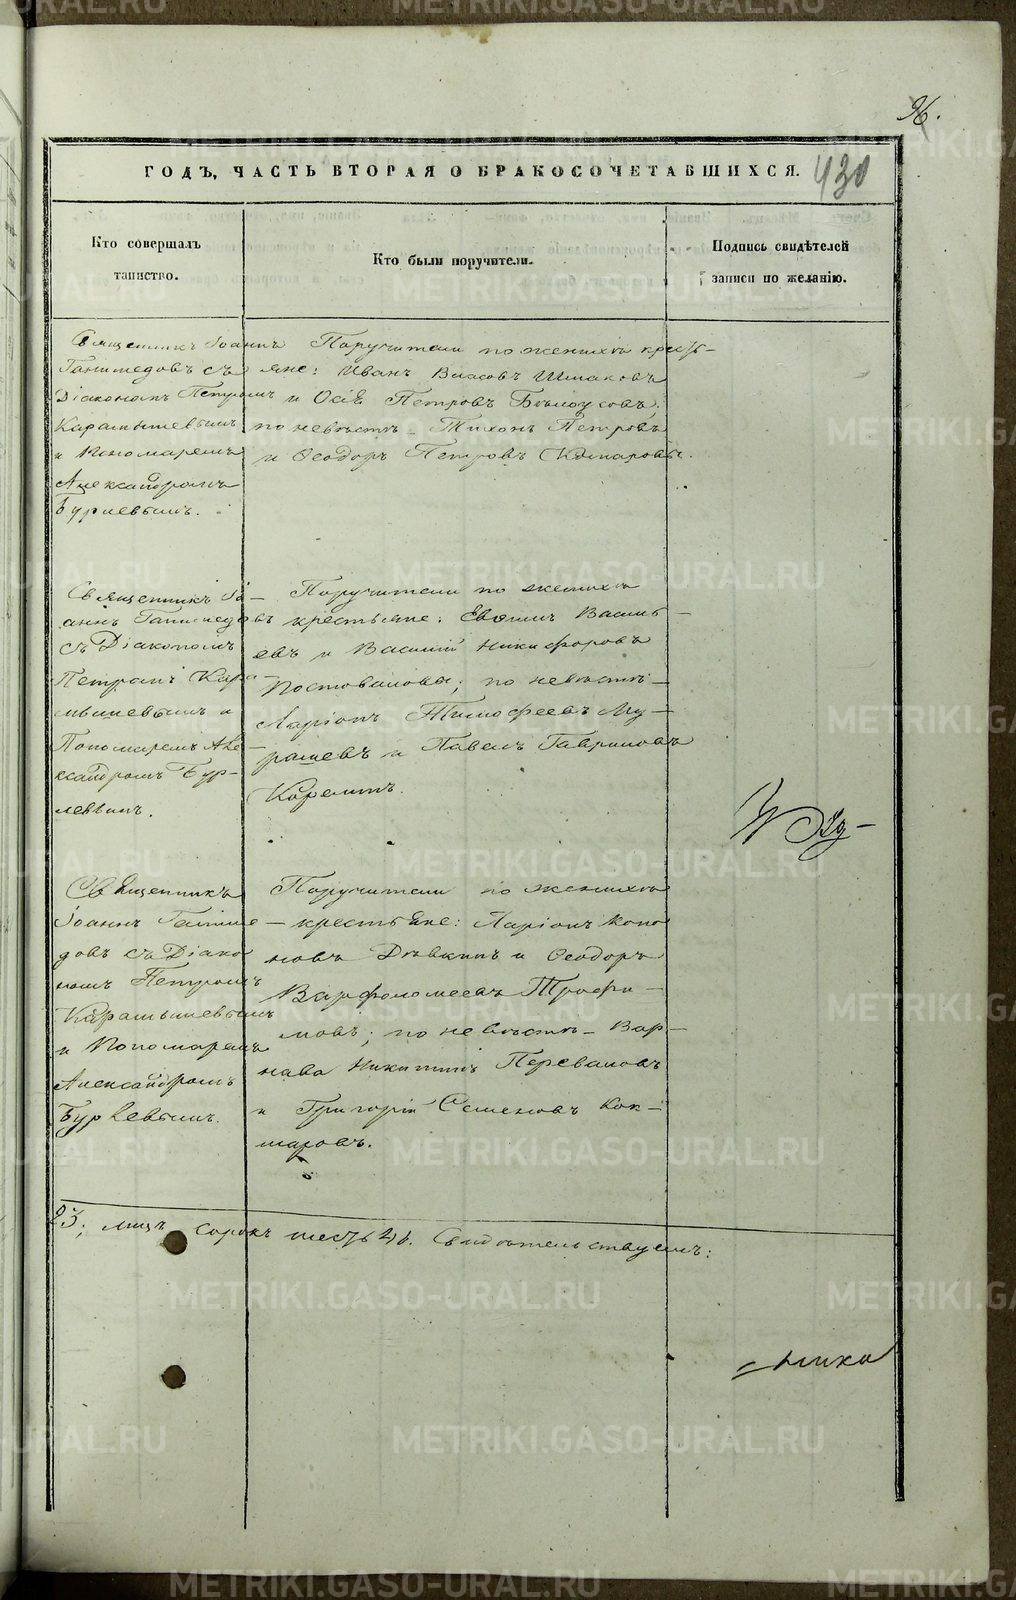 96.
ГОДЪ, ЧАСТЬ ВТОРАЯ О БРАКОСОЧЕТАВШИХСЯ.
430
Кто совершалъ
таинство.
Кто были поручители.
Подпись свидѣтелей
записи по желанію.
Священникъ Іоаннъ
Ганимедовъ съ
Діакономъ Петромъ
Карамышевымъ
и Пономаремъ
Александромъ
Бурлевымъ.
Поручители по женихѣ кресть-
яне: Иванъ Власовъ Шмаковъ
и Осія Петровъ Бѣлоусовъ;
по невѣстѣ - Тихонъ Петровъ
и Ѳеодоръ Петровъ Комаровы.
Священникъ Іо-
аннъ Ганимедовъ
съ Діакономъ
Петромъ Кара-
мышевымъ и
Пономаремъ Але-
ксандромъ Бур-
левымъ.
Поручители по женихѣ
крестьяне: Евѳимъ Василь-
евъ и Василій Никифоровъ
Постоваловы; по невѣстѣ -
Ларіонъ Тимофеевъ Му-
рашевъ и Павелъ Гавриловъ
Священникъ
Іоаннъ Ганиме-
довъ съ Діако-
номъ Петромъ
Карамышевымъ
и Пономаремъ
Александромъ
Бурлевымъ.
Поручители по женихѣ
- крестьяне: Ларіонъ Коно-
новъ Дѣвкинъ и Ѳеодоръ
Варфоломеевъ Трофи-
мовъ; по невѣстѣ - Вар-
нава Никитинъ Переваловъ
и Григорій Семеновъ Кок-
шаровъ.
23, лицъ сорокъ шесть 46. Свидѣтельствуемъ: